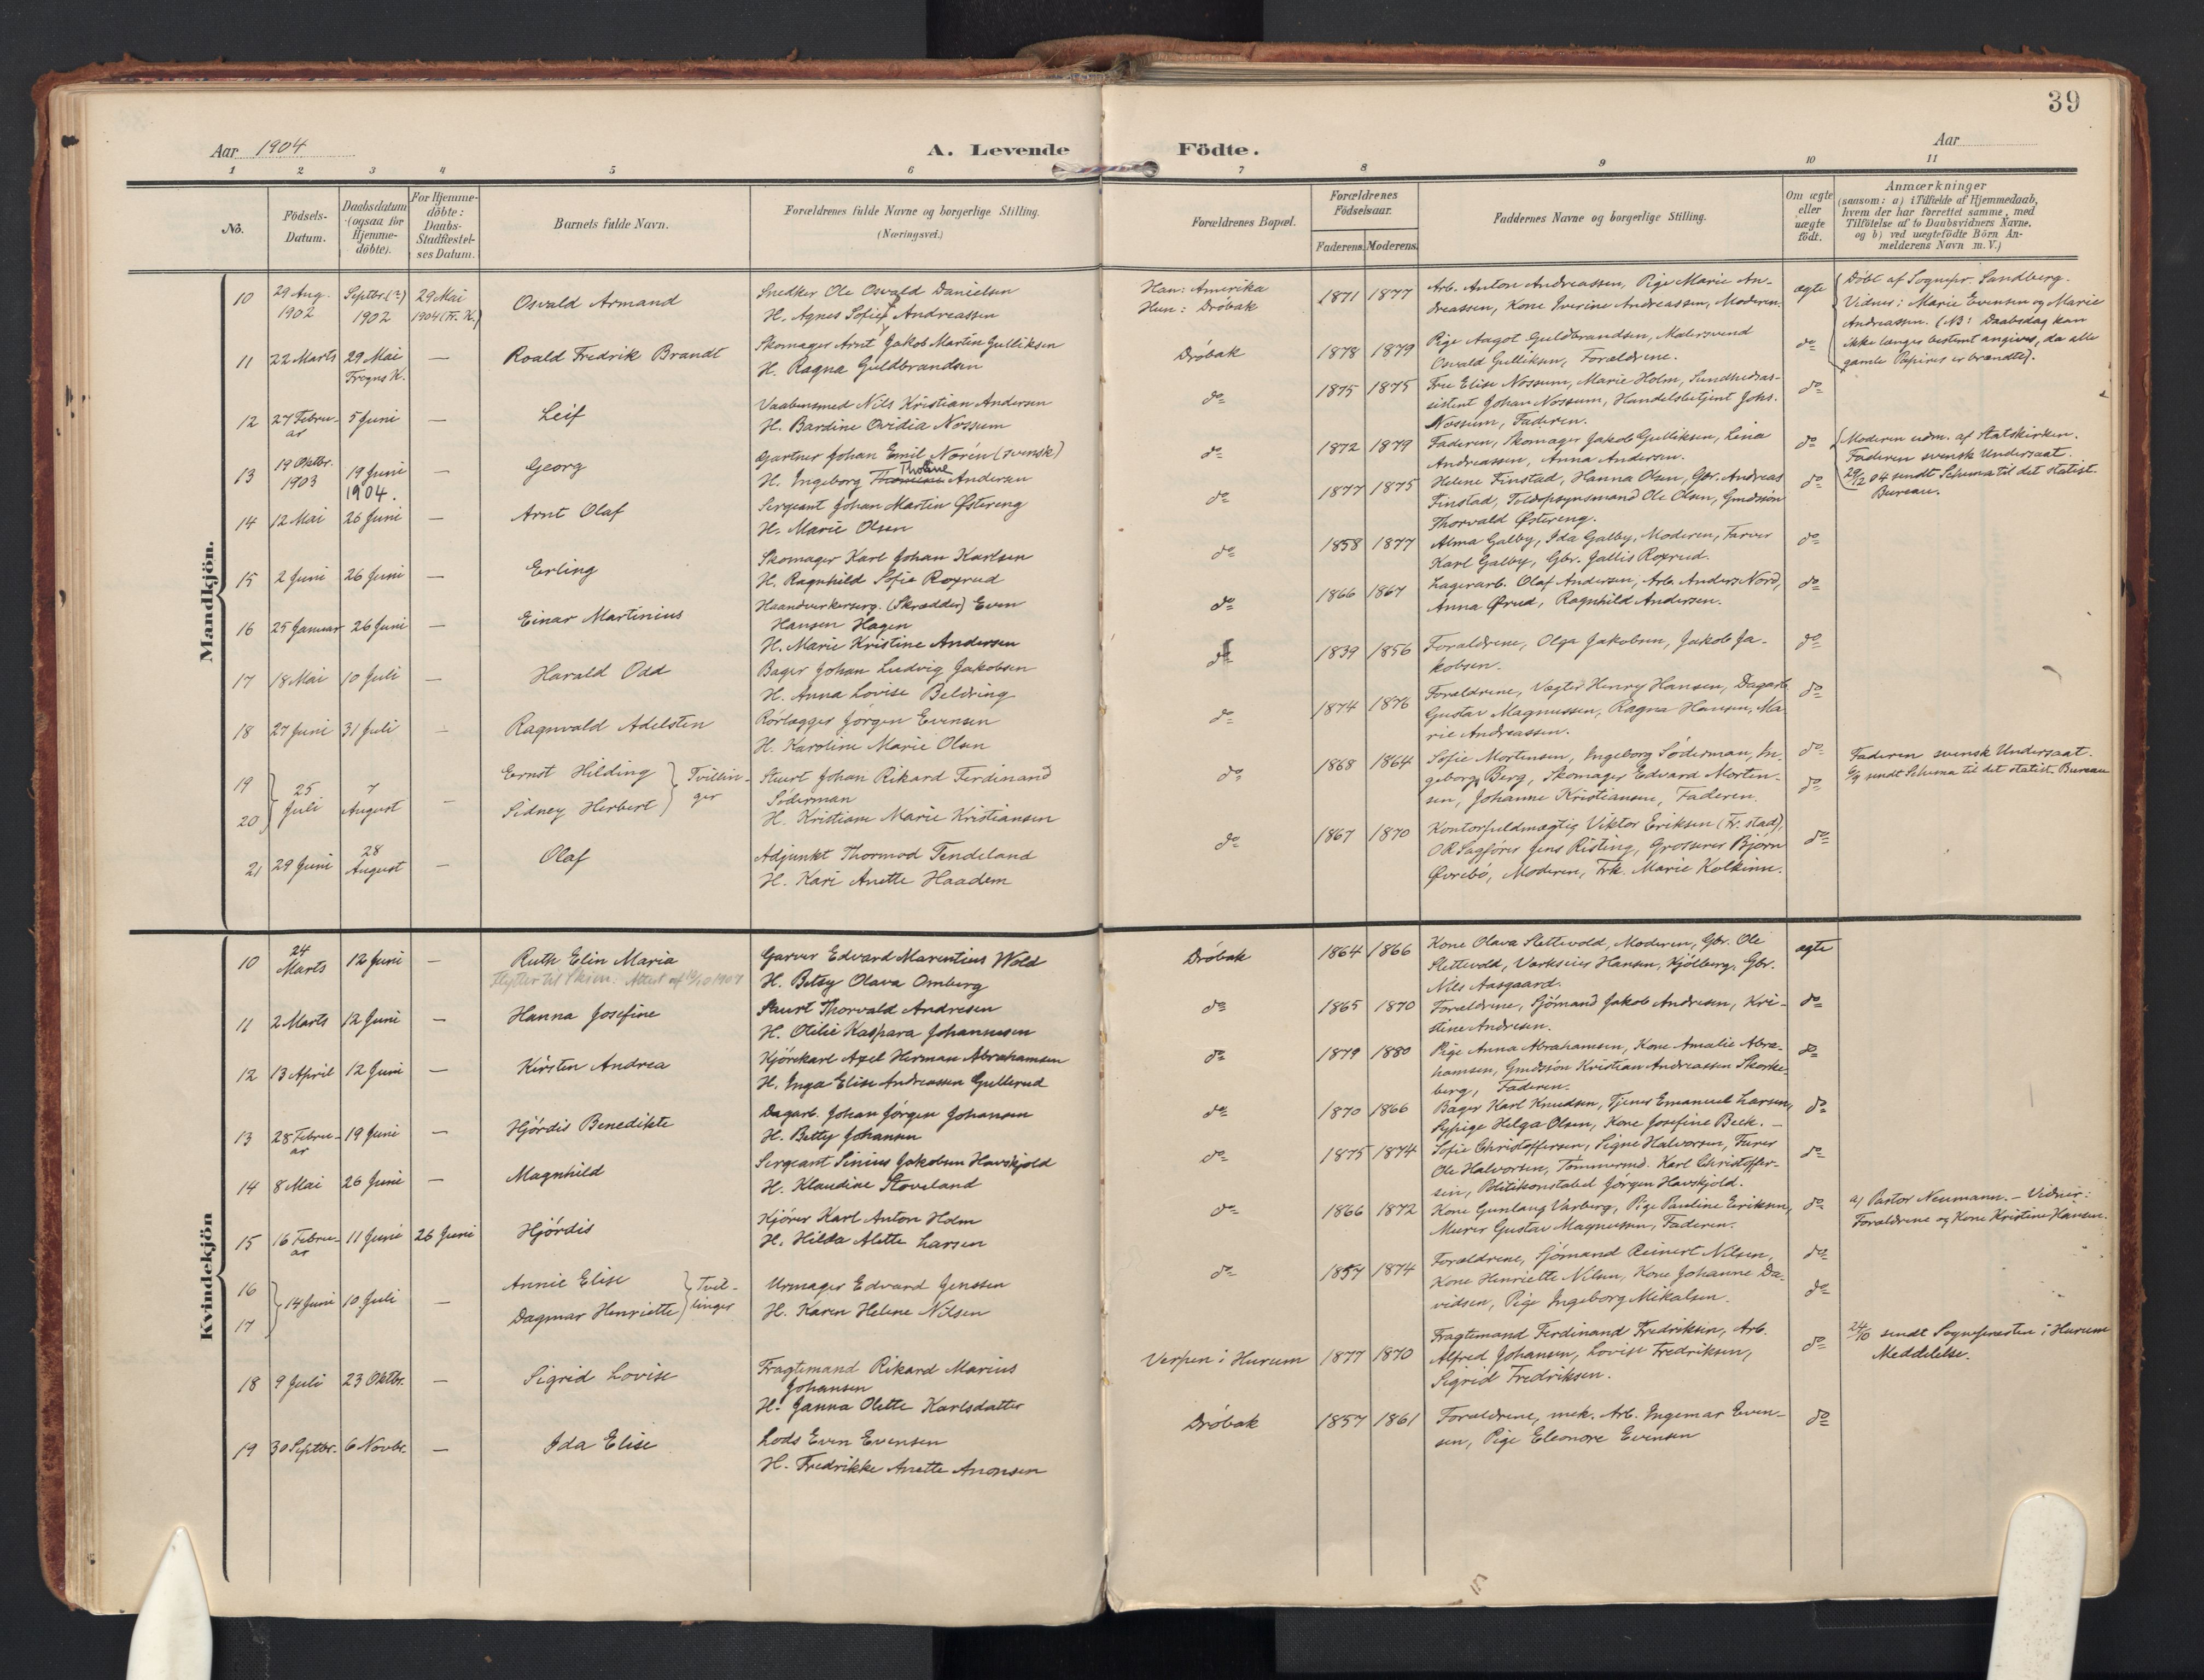 39
Aar 1904
A. Levende Födte.
Aar
1 2 3 4 5 6 7 8 9 10 11
No.
Födsels-Datum.
Daabsdatum (ogsaa for Hjemme-döbte).
For Hjemme-döbte: Daabs-Stadfæstel-ses Datum.
Barnets fulde Navn.
Forældrenes fulde Navne og borgerlige Stilling.
(Næringsvei.)
Forældrenes Bopæl.
Forældrenes Födselsaar.
Faderens. Moderens.
Faddernes Navne og borgerlige Stilling.
Om ægte eller uægte födt.
Anmærkninger
(saasom: a) i Tilfælde af Hjemmedaab,
hvem der har forrettet samme, med
Tilföielse af to Daabsvidners Navne.
og b) ved uægtefödte Börn An-
melderens Navn m. V.)
Mandkjön.
10 29 Aug. 1902 Septbr.(?) 1902 29 Mai 1904 (Fr. K.) Osvald Armand
Snedker Ole Osvald Danielsen
H. Agnes Sofie Andreassen
Han: Amerika
Hun: Dröbak
1871 1877
Arb. Anton Andreassen, Pige Marie An-
dreassen, Kone Iverine Andreassen, Moderen.
ægte
Döbt af Sognepr. Sandberg.
Vidner: Marie Evensen og Marie
Andreassen. (NB: Daabsdag kan
ikke længer bestemt angives, da alle
gamle Papirer er brændte).
11 22 Marts 29 Mai Frogns K. — Roald Fredrik Brandt
Skomager Arnt Jakob Martin Gulliksen
H. Ragna Guldbrandsen
Dröbak 1878 1879
Pige Aagot Guldbrandsen, Malersvend
Osvald Gulliksen, Forældrene.
do
12 27 Febru-ar 5 Juni — Leif
Vaabensmed Nils Kristian Andersen
H. Bardine Ovidia Nossum
do 1875 1875
Fru Elise Nossum, Marie Holm, Sundhedsas-
sistent Johan Nossum, Handelsbetjent Johs.
Nossum, Faderen.
do
13 19 Oktbr. 1903 19 Juni 1904. — Georg
Gartner Johan Emil Norén (svensk)
H. Ingeborg Tholine Andersen
do 1872 1879
Faderen, Skomager Jakob Gulliksen, Lina
Andreassen, Anna Andersen.
do
Moderen udm. af Statskirken.
Faderen svensk Undersaat.
29/12 04 sendt Schema til det statist.
Bureau.
14 12 Mai 26 Juni — Arnt Olaf
Sergeant Johan Martin Östereng
H. Marie Olsen
do 1877 1875
Helene Finstad, Hanna Olsen, Gbr. Andreas
Finstad, Toldopsynsmand Ole Olsen, Gmdssön
Thorvald Östereng.
do
15 2 Juni 26 Juni — Erling
Skomager Karl Johan Karlsen
H. Ragnhild Sofie Roxrud
do 1858 1877
Alma Galby, Ida Galby, Moderen, Farver
Karl Galby, Gbr. Jallis Roxrud.
do
16 25 Januar 26 Juni — Einar Martinius
Haandverkerserg. (Skrædder) Even
Hansen Hagen
H. Marie Kristine Andersen
do 1866 1867
Lagerarb. Olaf Andersen, Arb. Anders Nord,
Anna Ørud, Ragnhild Andersen.
do
17 18 Mai 10 Juli — Harald Odd
Bager Johan Ludvig Jakobsen
H. Anna Lovise Beldring
do 1839 1856
Forældrene, Olga Jakobsen, Jakob Ja-
kobsen.
do
18 27 Juni 31 Juli — Ragnvald Adelsten
Rörlægger Jörgen Evensen
H. Karoline Marie Olsen
do 1874 1876
Forældrene, Vægter Henry Hansen, Dagarb.
Gustav Magnussen, Ragna Hansen, Ma-
rie Andreassen.
do
19 20 25 Juli 7 August — Ernst Hilding
Sidney Herbert Tvillin-ger
Stuert Johan Rikard Ferdinand
Söderman
H. Kristiane Marie Kristiansen
do 1868 1864
Sofie Mortensen, Ingeborg Söderman, In-
geborg Berg, Skomager Edvard Morten-
sen, Johanne Kristiansen, Faderen.
do do
Faderen svensk Undersaat.
6/9 sendt Schema til det statist. Bureau
21 29 Juni 28 August — Olaf
Adjunkt Thormod Tendeland
H. Kari Anette Haadem
do 1867 1870
Kontorfuldmægtig Viktor Eriksen (Fr.stad),
ORSagförer Jens Risting, Grosserer Björn
Övrebö, Moderen, Frk. Marie Kolkinn.
do
Kvindekjön
10 24 Marts 12 Juni — Ruth Elin Maria
Garver Edvard Marentius Wold
H. Betsy Olava Omberg
Dröbak 1864 1866
Kone Olava Slettevold, Moderen, Gbr. Ole
Slettevold, Værkseier Hansen, Kjölberg, Gbr.
Nils Aasgaard.
ægte
11 2 Marts 12 Juni — Hanna Josefine
Stuert Thorvald Andresen
H. Otilie Kaspara Johannesen
do 1865 1870
Forældrene, Sjömand Jakob Andresen, Kri-
stine Andresen.
do
12 13 April 12 Juni — Kirsten Andrea
Kjörekarl Axel Herman Abrahamsen
H. Inga Elise Andreassen Gullerud
do 1879 1880
Pige Anna Abrahamsen, Kone Amalie Abra-
hamsen, Gmdssön Kristian Andreassen Skorke-
berg, Faderen.
do
13 28 Febru-ar 19 Juni — Hjördis Benedikte
Dagarb. Johan Jörgen Johansen
H. Betty Johansen
do 1870 1866
Bager Karl Knudsen, Tjener Emanuel Larsen,
Sypige Helga Olsen, Kone Josefine Beck. —
do
14 8 Mai 26 Juni — Magnhild
Sergeant Sinius Jakobsen Havskjold
H. Klaudine Stoveland
do 1875 1874
Sofie Christoffersen, Signe Halvorsen, Furer
Ole Halvorsen, Tömmermd. Karl Christoffer-
sen, Politikonstabel Jörgen Havskjold.
do
15 16 Febru-ar 11 Juni 26 Juni Hjördis
Kjörer Karl Anton Holm
H. Hilda Alette Larsen
do 1866 1872
Kone Gunlaug Varberg, Pige Pauline Eriksen,
Murer Gustav Magnussen, Faderen.
do
a) Pastor Neumann. — Vidner:
Forældrene og Kone Kristine Hansen.
16 17 14 Juni 10 Juli — Annie Elise
Dagmar Henriette Tvil-linger
Urmager Edvard Jenssen
H. Karen Helene Nilsen
do 1857 1874
Forældrene, Sjömand Reinert Nilsen,
Kone Henriette Nilsen, Kone Johanne Da-
vidsen, Pige Ingeborg Mikalsen.
do do
18 9 Juli 23 Oktbr. — Sigrid Lovise
Fragtemand Rikard Marius
Johansen
H. Janna Olette Karlsdatter
Verpen i Hurum 1877 1870
Fragtemand Ferdinand Fredriksen, Arb.
Alfred Johansen, Lovise Fredriksen,
Sigrid Fredriksen.
do
24/10 sendt Sognepresten i Hurum
Meddelelse.
19 30 Septbr. 6 Novbr. — Ida Elise
Lods Even Evensen
H. Fredrikke Anette Aronsen
Dröbak 1857 1861
Forældrene, mek. Arb. Ingemar Even-
sen, Pige Eleonore Evensen
do